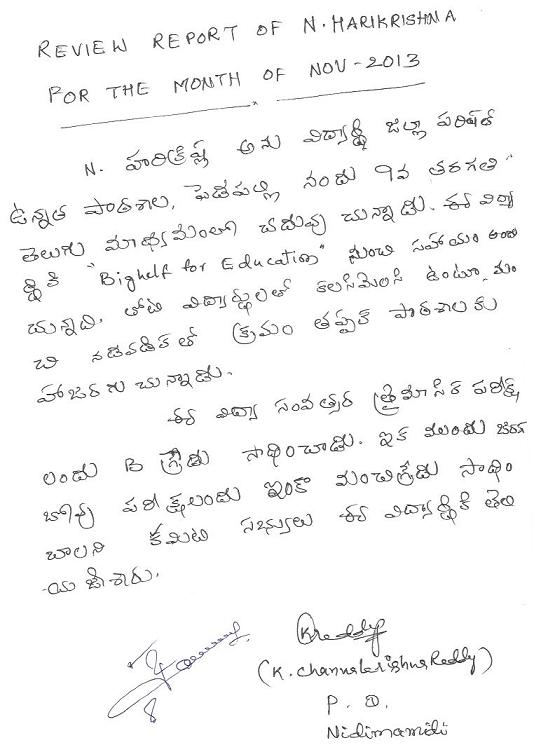 REVIEW REPORT OF N. HARIKRISHNA
FOR THE MONTH OF NOV-2013
N. హరిక్రిష్ణ అను విద్యార్థి జిల్లా పరిషత్
ఉన్నత పాఠశాల, పెడపల్లి నందు 9వ తరగతి
తెలుగు మాధ్యమంలో చదువు చున్నాడు. ఈ విద్యా
ర్థికి "Bighelf for Education" నుంచి సహాయం అందు
చున్నది. తోటి విద్యార్థులతో కలసిమెలసి ఉంటూ, మం
చి నడవడికతో క్రమం తప్పక పాఠశాలకు
హాజరగు చున్నాడు.
ఈ విద్యా సంవత్సర త్రైమాసిక పరీక్ష
లందు B గ్రేడు సాధించాడు. ఇక ముందు జరగ
బోవు పరీక్షలందు ఇంకా మంచిగ్రేడు సాధిం
చాలని కమిటి సభ్యులు ఈ విద్యార్థికి తెలి
యజేశారు.
KReddy
(K. Channakrishna Reddy)
P. D.
Nidimamidi